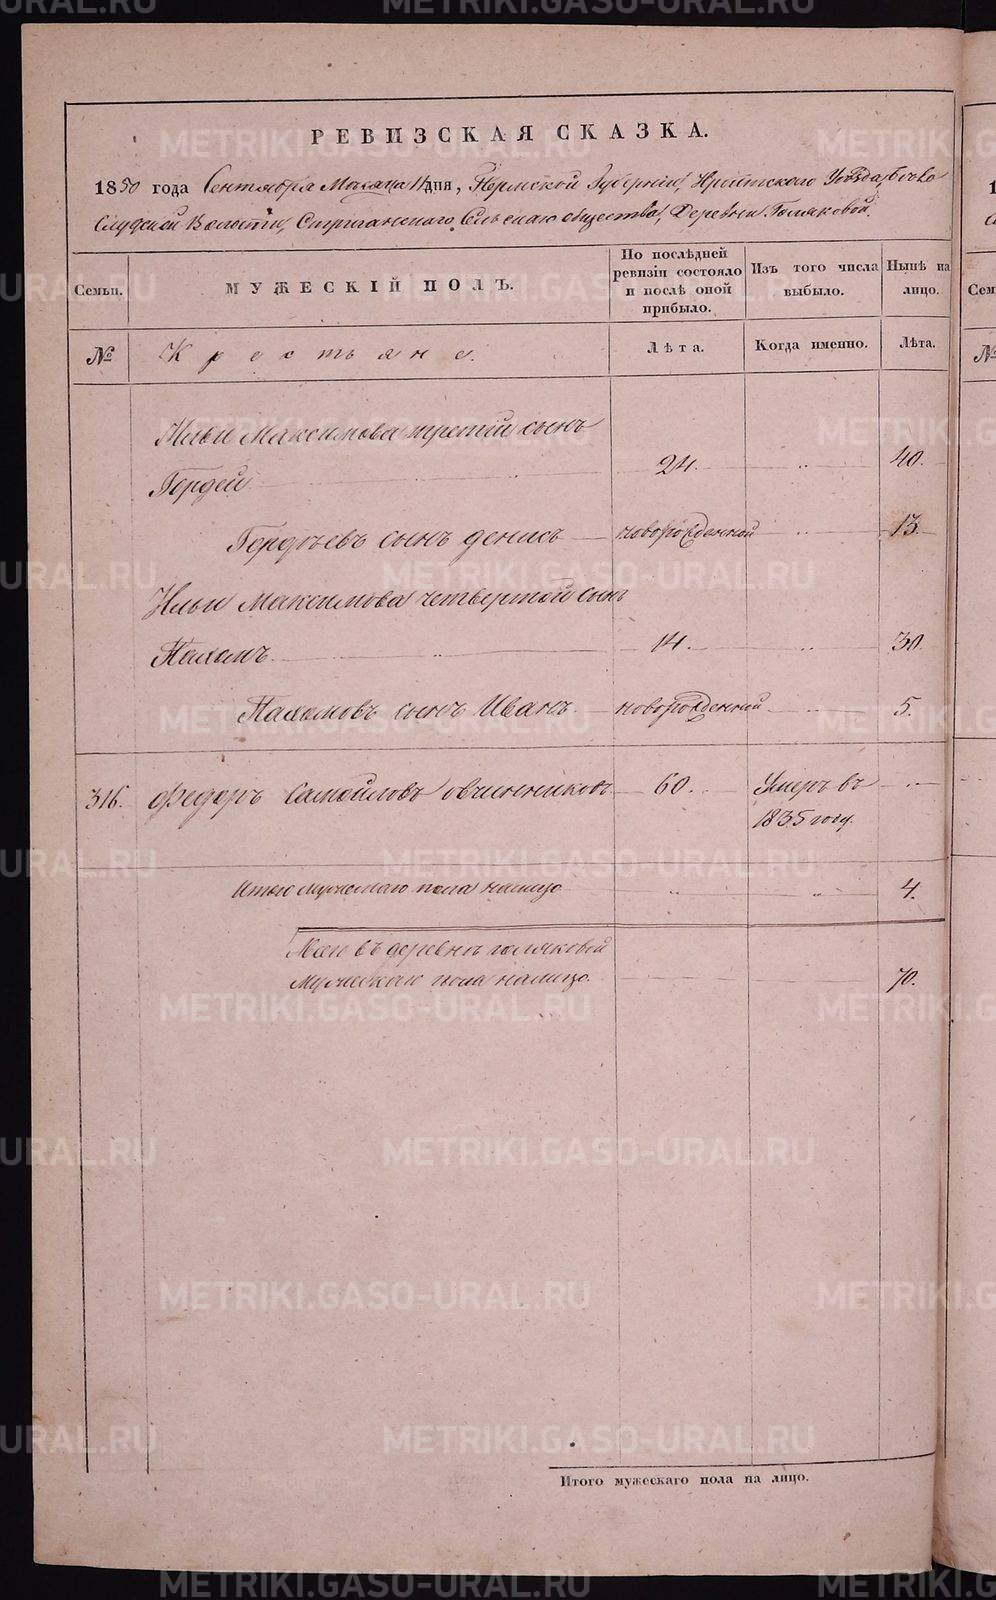 РЕВИЗСКАЯ СКАЗКА.
1850 года Сентября Месяца 11 дня, Пермской Губернии, Ирбитского Уѣзда, Бѣло
Слудской Волости, Стриганскаго Сельскаго общества, Деревни Голяковой.
Семьи.
МУЖЕСКІЙ ПОЛЪ.
По послѣдней ревизіи состояло и послѣ оной прибыло.
Изъ того числа выбыло.
Нынѣ на лицо.
№
Крестьяне.
Лѣта.
Когда именно.
Лѣта.
Ильи Максимова третій сынъ
Гордей 24. 40.
Гордѣевъ сынъ Денисъ новорожденной 13.
Ильи Максимова четвертой сынъ
Пахомъ 14. 30.
Пахомовъ сынъ Иванъ новорожденной 5.
316. Федоръ Самойловъ Овчинниковъ 60. Умеръ въ
1835 году.
Итого мужескаго пола налицо 4.
Всего въ деревнѣ Голяковой
Мужескаго пола налицо. 70.
Итого мужескаго пола на лицо.
METRIKI.GASO-URAL.RU